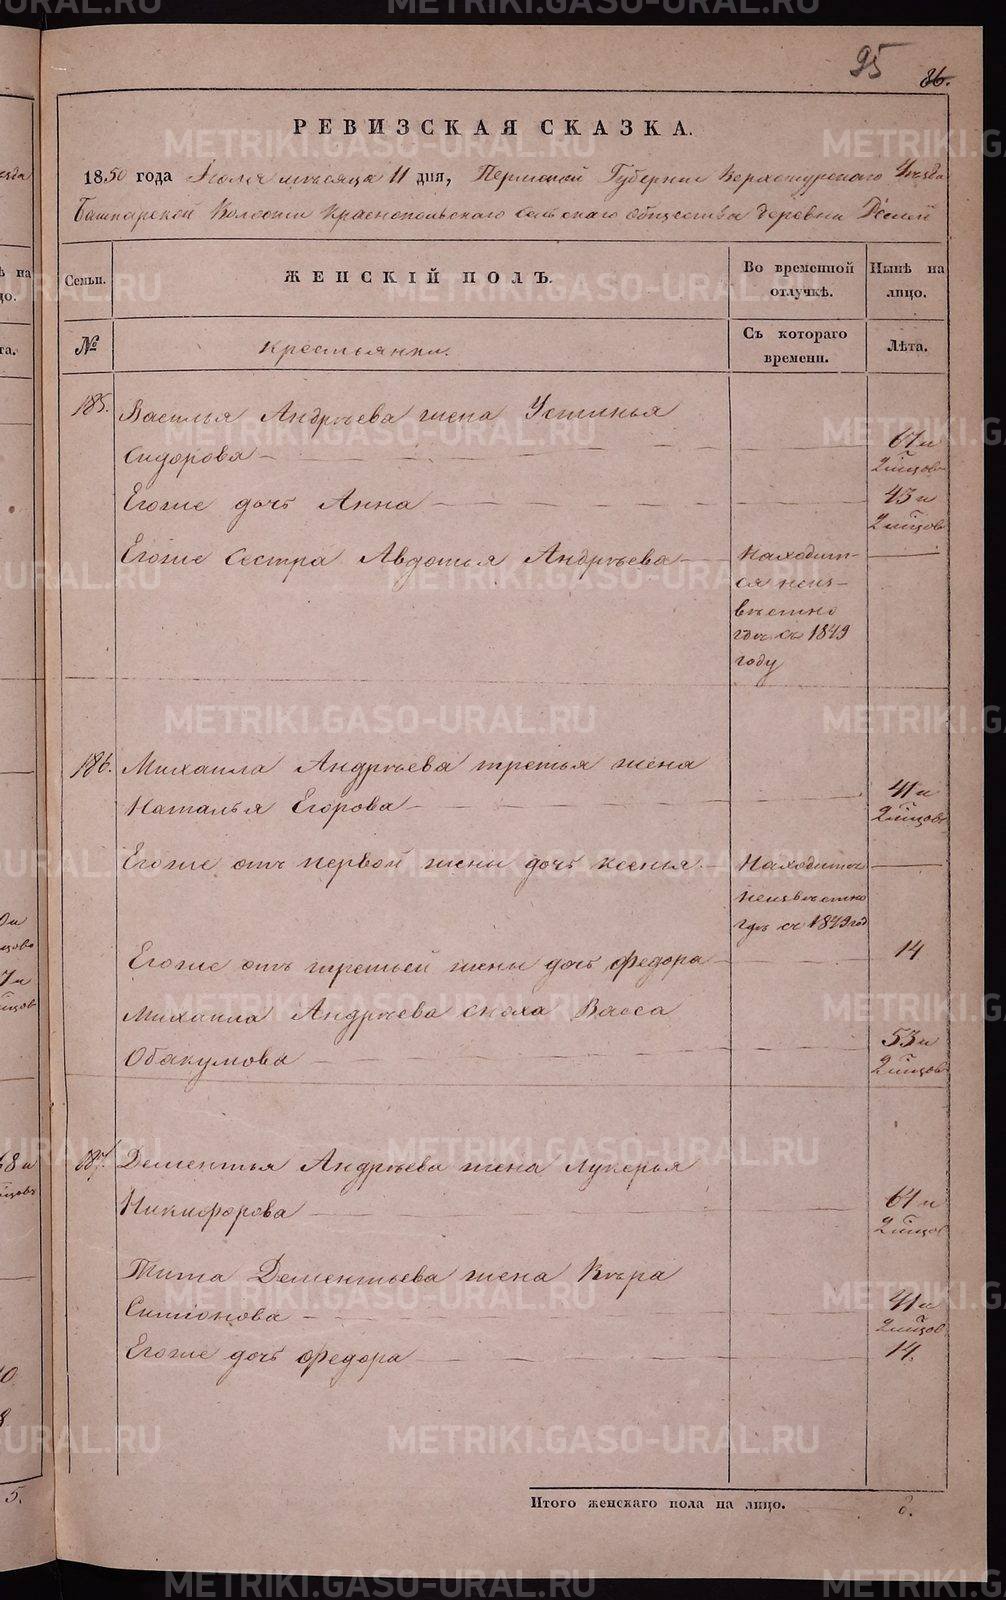 95
86.
РЕВИЗСКАЯ СКАЗКА.
1850 года Июля месяца 11 дня, Пермской Губернии Верхотурскаго Уезда
Башкарской Волости Краснопольскаго сельскаго общества деревни
Семьи.
ЖЕНСКІЙ ПОЛЪ.
Во временной отлучкѣ.
Нынѣ на лицо.
№
Крестьянки.
Съ котораго времени.
Лѣта.
185.
Василья Андрѣева жена Устинья
Сидорова
67 и
2 мѣсцовъ
Егоже дочь Анна
43 и
2 мѣсцовъ
Егоже сестра Авдотья Андрѣева
Находит-
ся неиз-
вѣстно
гдѣ съ 1849
году
186.
Михаила Андрѣева третья жена
Наталья Егорова
41 и
2 мѣсцовъ
Егоже отъ первой жены дочь Ксенья
Находится
неизвѣстно
гдѣ съ 1849 год
Егоже отъ третьей жены дочь Федора
14
Михаила Андрѣева сноха Васса
Обакумова
53 и
2 мѣсцовъ
187.
Дементья Андрѣева жена Лукерья
Никифорова
61 и
2 мѣсцов
Тита Дементьева жена Вѣра
Симионова
41 и
2 мѣсцов
Егоже дочь Федора
14.
Итого женскаго пола на лицо.
8.
METRIKI.GASO-URAL.RU